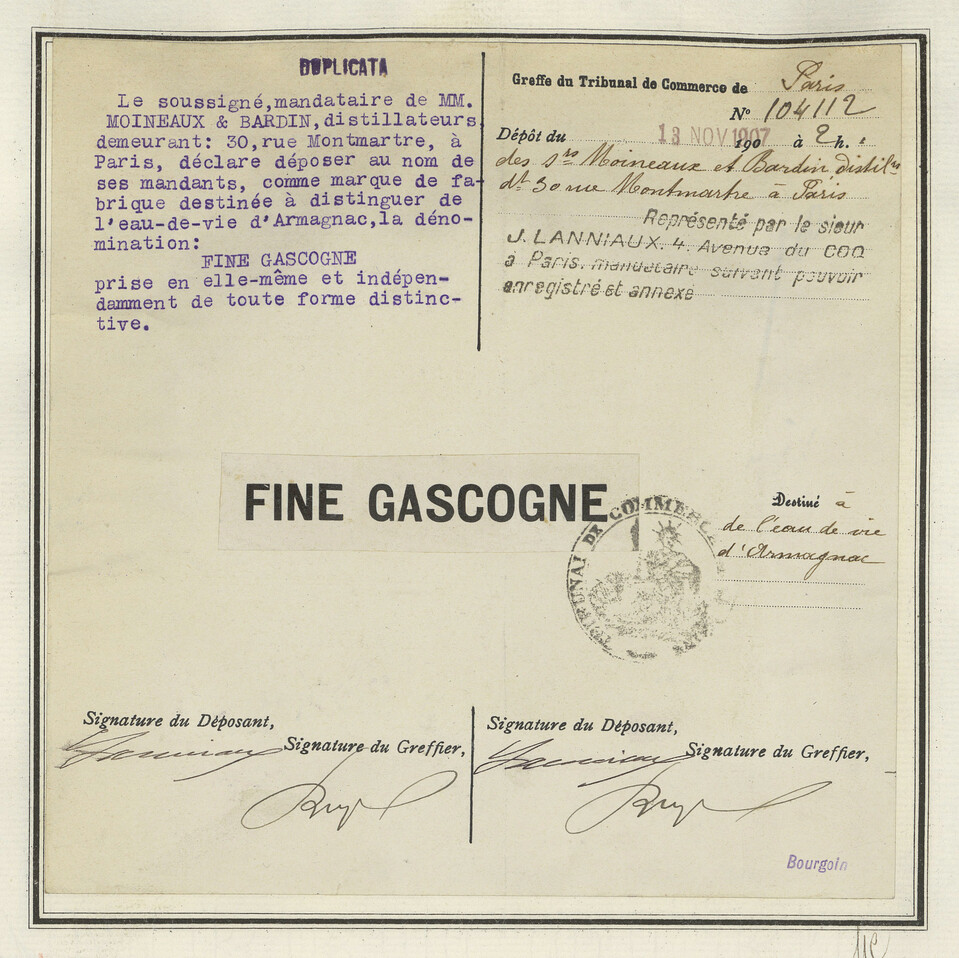 DUPLICATA
Le soussigné, mandataire de MM.
MOINEAUX & BARDIN, distillateurs
demeurant: 30, rue Montmartre, à
Paris, déclare déposer au nom de
ses mandants, comme marque de fa-
brique destinée à distinguer de
l'eau-de-vie d'Armagnac, la déno-
mination:
FINE GASCOGNE
prise en elle-même et indépen-
damment de toute forme distinc-
tive.
Greffe du Tribunal de Commerce de Paris
N° 104112
Dépôt du 13 NOV 1907 190 à 2 h. :
des srs Moineaux et Bardin, distilrs
dt 30 rue Montmartre à Paris
Représenté par le sieur
J. LANNIAUX. 4. Avenue du COQ
à Paris. mandataire suivant pouvoir
enregistré et annexe
FINE GASCOGNE
TRIBUNAL DE COMMERCE
Destiné à
de l'eau de vie
d'Armagnac
Signature du Déposant,
Signature du Greffier,
Signature du Déposant,
Signature du Greffier,
Bourgoin